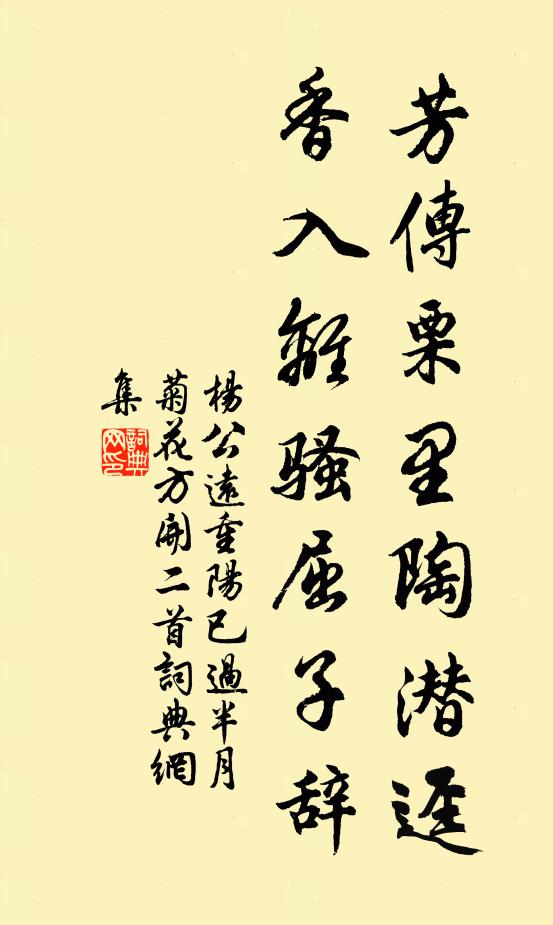 芳傳栗里陶潜逕
香入離騷屈子辞
楊公遠重陽已過半月
菊花方開二首詞典網
集
詞典
网印